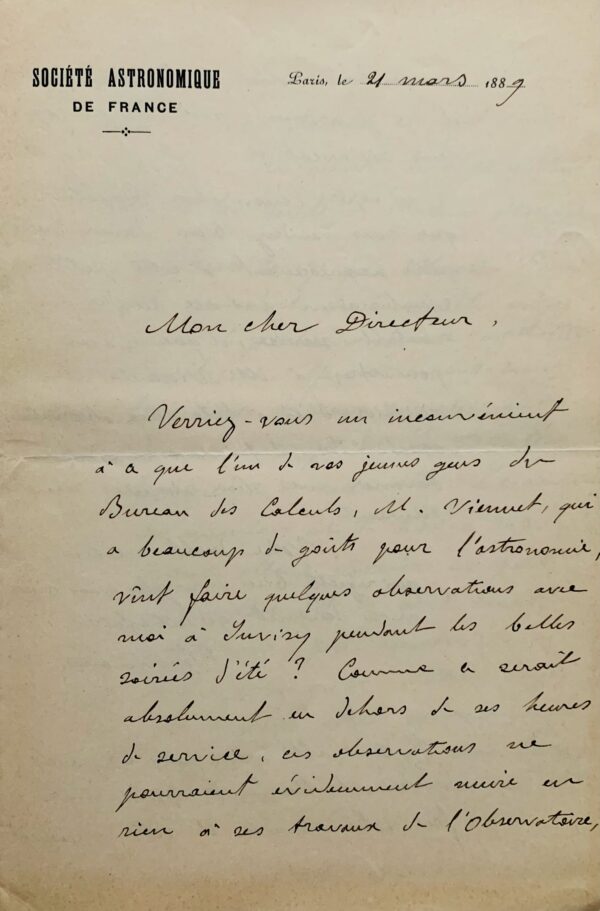 SOCIÉTÉ ASTRONOMIQUE
DE FRANCE
Paris, le 21 mars 1889
Mon cher Directeur,
Verriez-vous un inconvénient
à ce que l'un de vos jeunes gens du
Bureau des Calculs, M. Viennet, qui
a beaucoup de goûts pour l'astronomie,
vînt faire quelques observations avec
moi à Juvisy pendant les belles
soirées d'été ? Comme ce serait
absolument en dehors de ses heures
de service, ces observations ne
pourraient évidemment nuire en
rien à ses travaux de l'Observatoire,